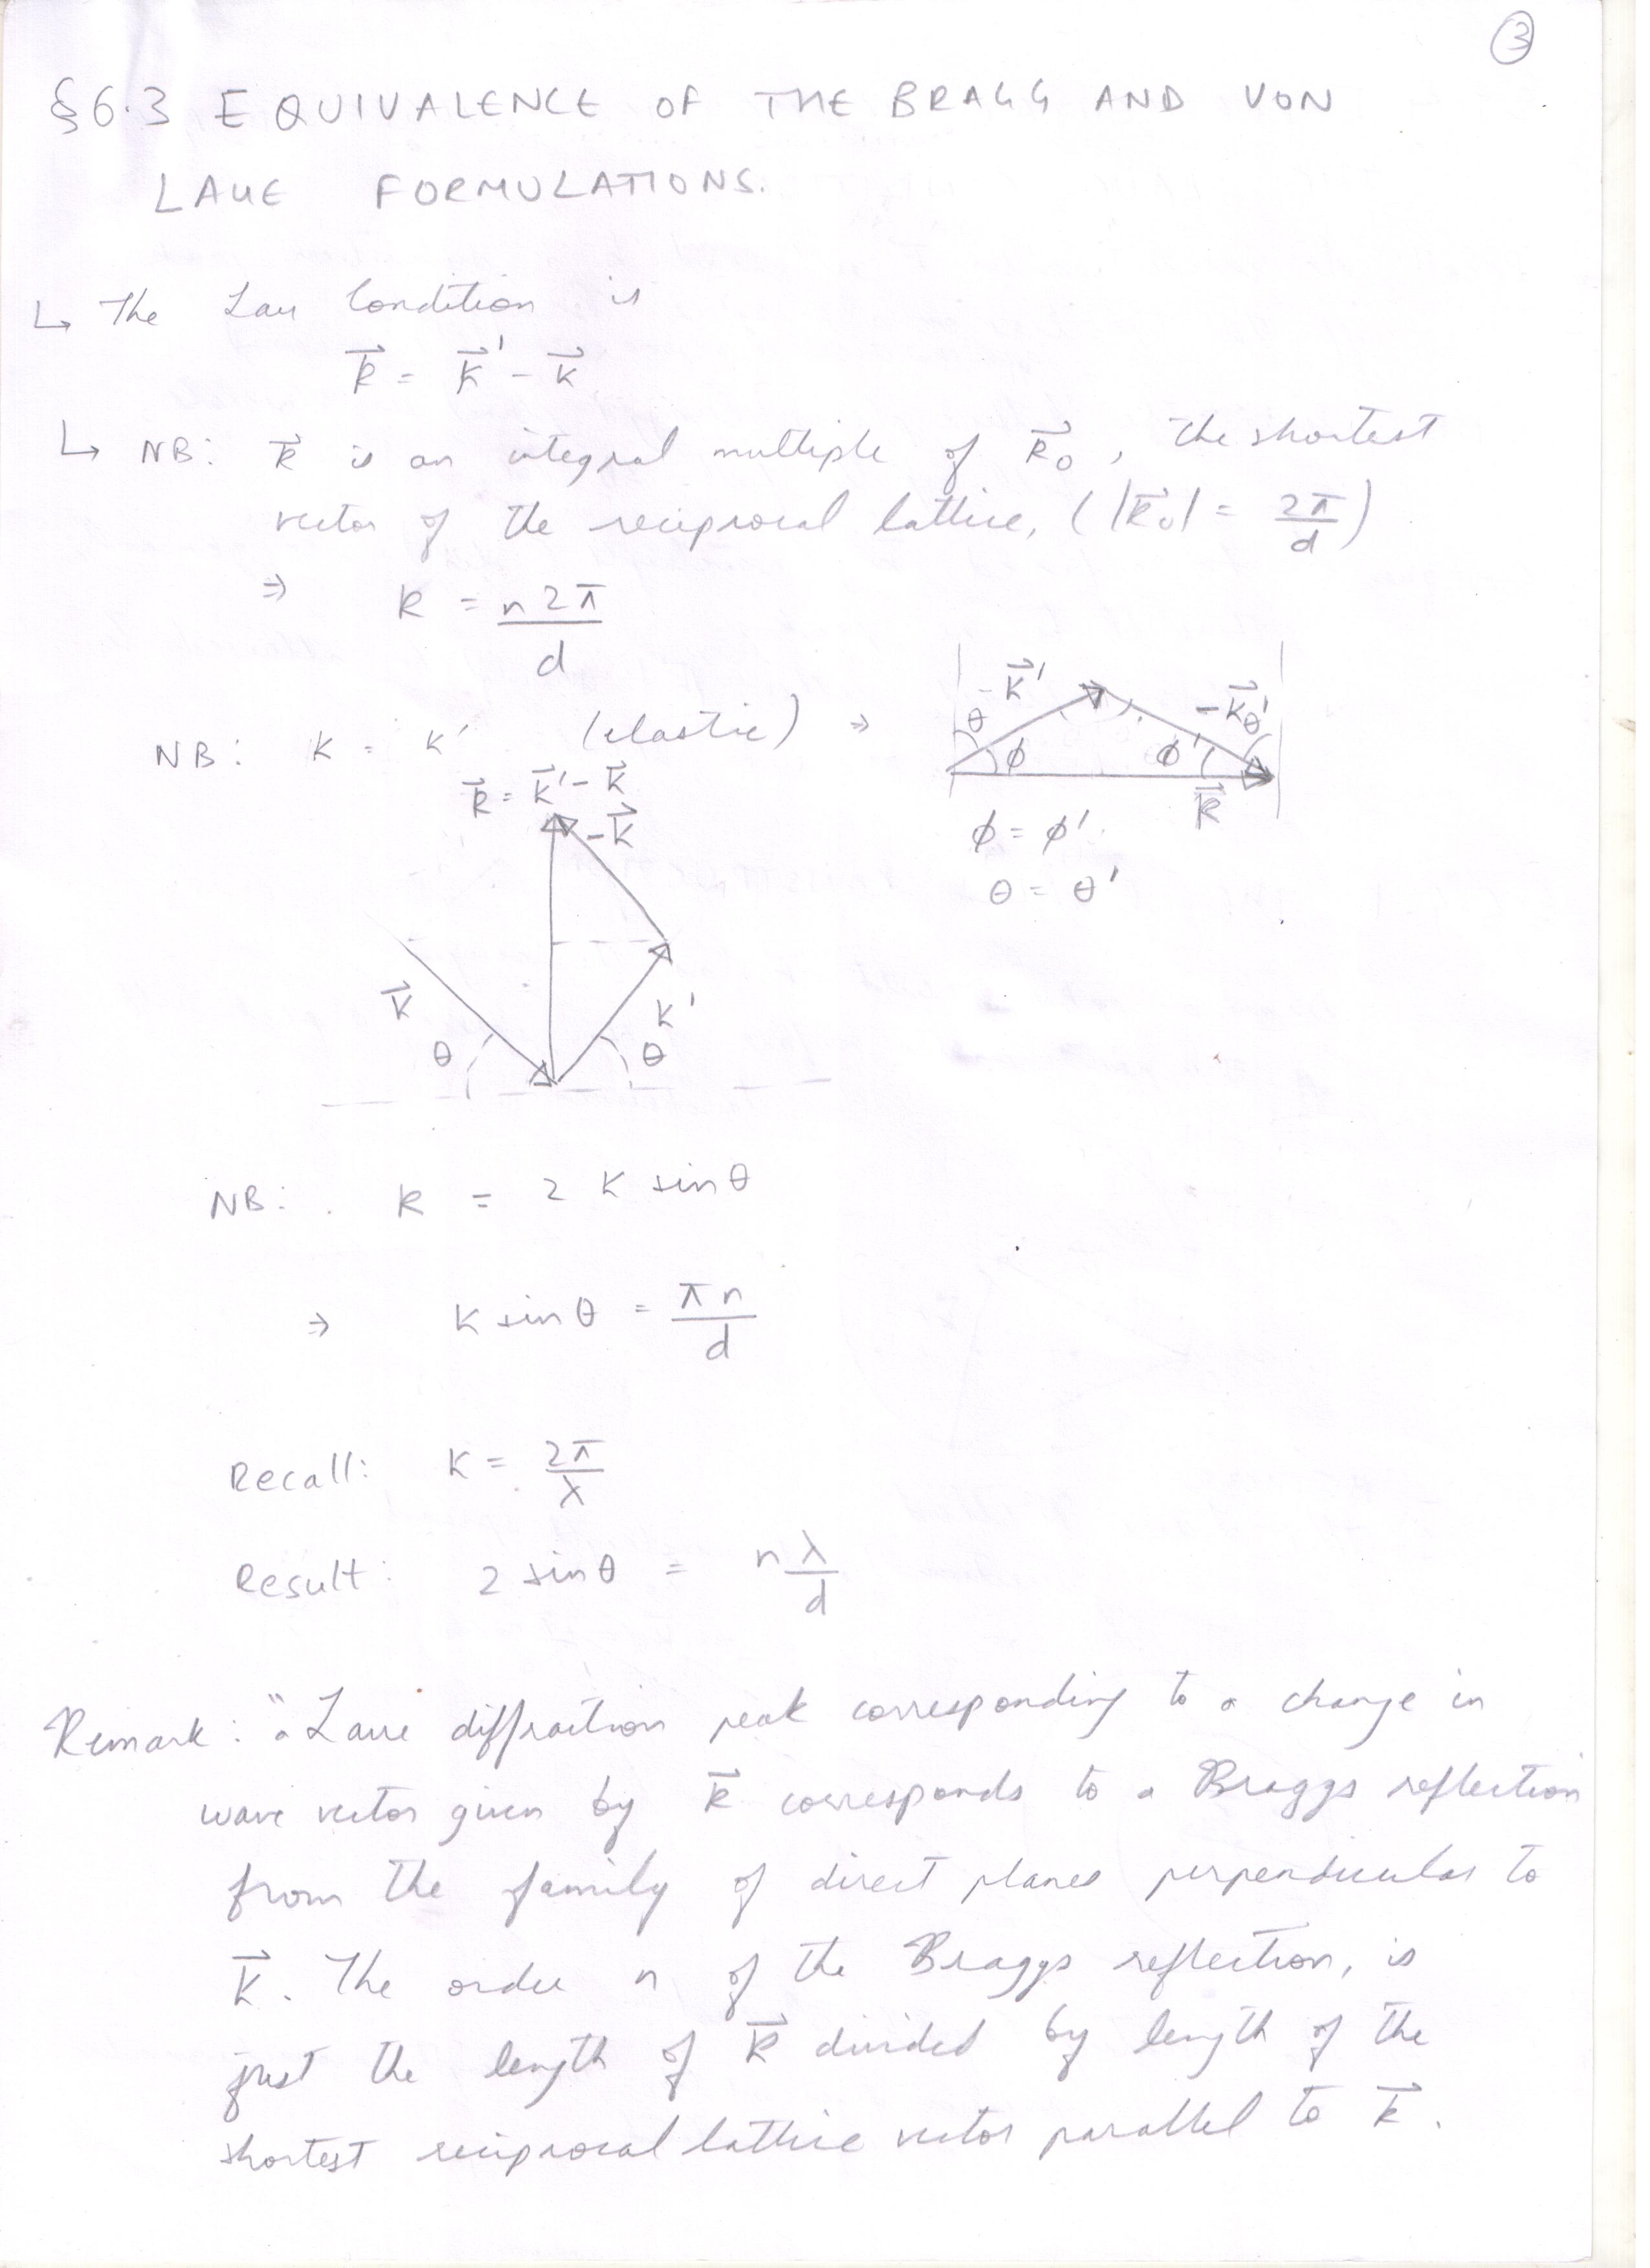 ③
§6.3 EQUIVALENCE OF THE BRAGG AND VON
LAUE FORMULATIONS.
↳ The Lau Condition is
K⃗ = k⃗' - k⃗
↳ NB: K⃗ is an integral multiple of K⃗₀, the shortest
vector of the reciprocal lattice, (|K⃗₀| = 2π/d)
⇒ K = n2π/d
NB: k = k' (elastic) ⇒
-k⃗' -k⃗'
θ θ'
φ φ'
K⃗
φ = φ'
θ = θ'
K⃗ = k⃗' - k⃗
-k⃗
k⃗ k'
θ θ
NB: K = 2 k sinθ
⇒ k sinθ = πn/d
Recall: k = 2π/λ
Result: 2 sinθ = nλ/d
Remark: "a Laue diffraction peak corresponding to a change in
wave vector given by K⃗ corresponds to a Braggs reflection
from the family of direct planes perpendicular to
K⃗. The order n of the Braggs reflection, is
just the length of K⃗ divided by length of the
shortest reciprocal lattice vector parallel to K⃗.